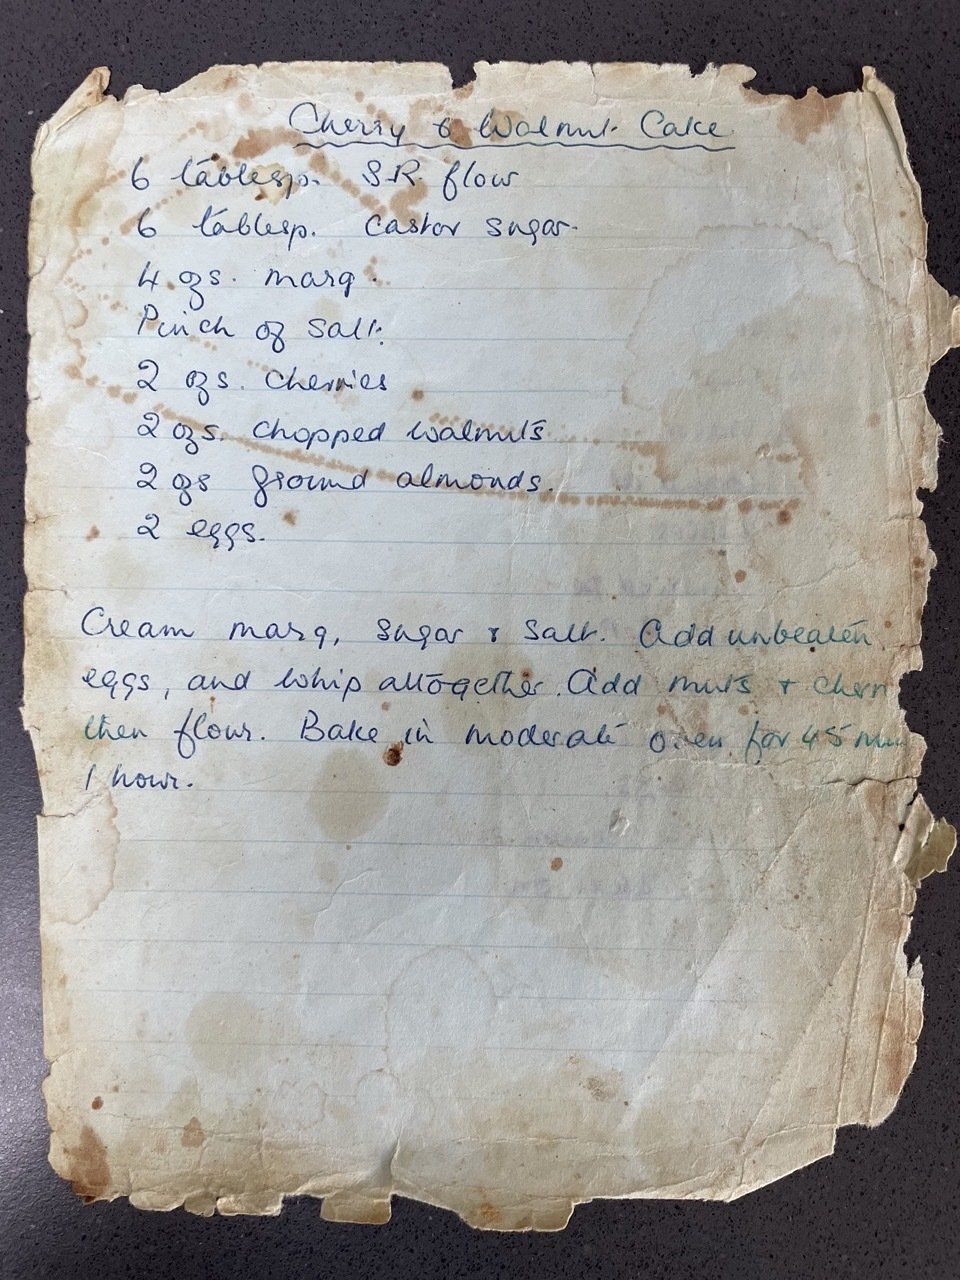 Cherry & Walnut Cake
6 tablesp. S.R. flow
6 tablesp. Castor sugar.
4 ozs. marg.
Pinch of salt.
2 ozs. cherries
2 ozs. chopped walnuts
2 ozs ground almonds.
2 eggs.
Cream marg, sugar & salt. Add unbeaten
eggs, and whip altogether. Add nuts + cherr
then flour. Bake in moderate oven for 45 min
1 hour.